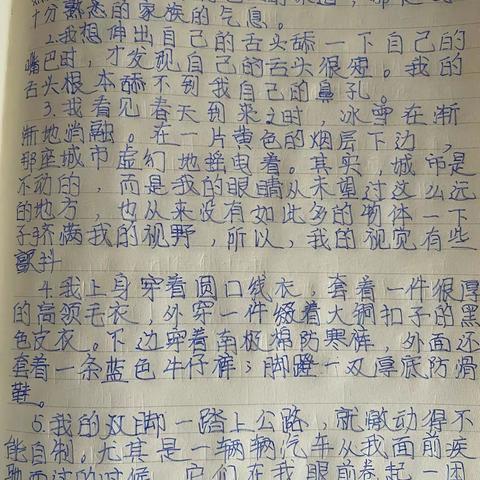 十分熟悉的家族的气息。
2.我想伸出自己的舌头舔一下自己的
嘴巴时，才发现自己的舌头很短。我的
舌头根本舔不到我自己的鼻孔。
3.我看见春天到来之时，冰雪在渐
渐地消融。在一片黄色的烟层下边，
那座城市虚幻地摇曳着。其实，城市是
不动的，而是我的眼睛从未望过这么远
的地方，也从来没有如此多的物体一下
子挤满我的视野，所以，我的视觉有些
颤抖
4.我上身穿着圆口线衣，套着一件很厚
的高领毛衣，外穿一件缀着大铜扣子的黑
色皮衣。下边穿着南极棉防寒裤，外面还
套着一条蓝色牛仔裤；脚蹬一双厚底防滑
鞋。
5.我的双脚一踏上公路，就激动得不
能自制。尤其是一辆辆汽车从我面前疾
驰而过的时候，它们在我眼前卷起一团